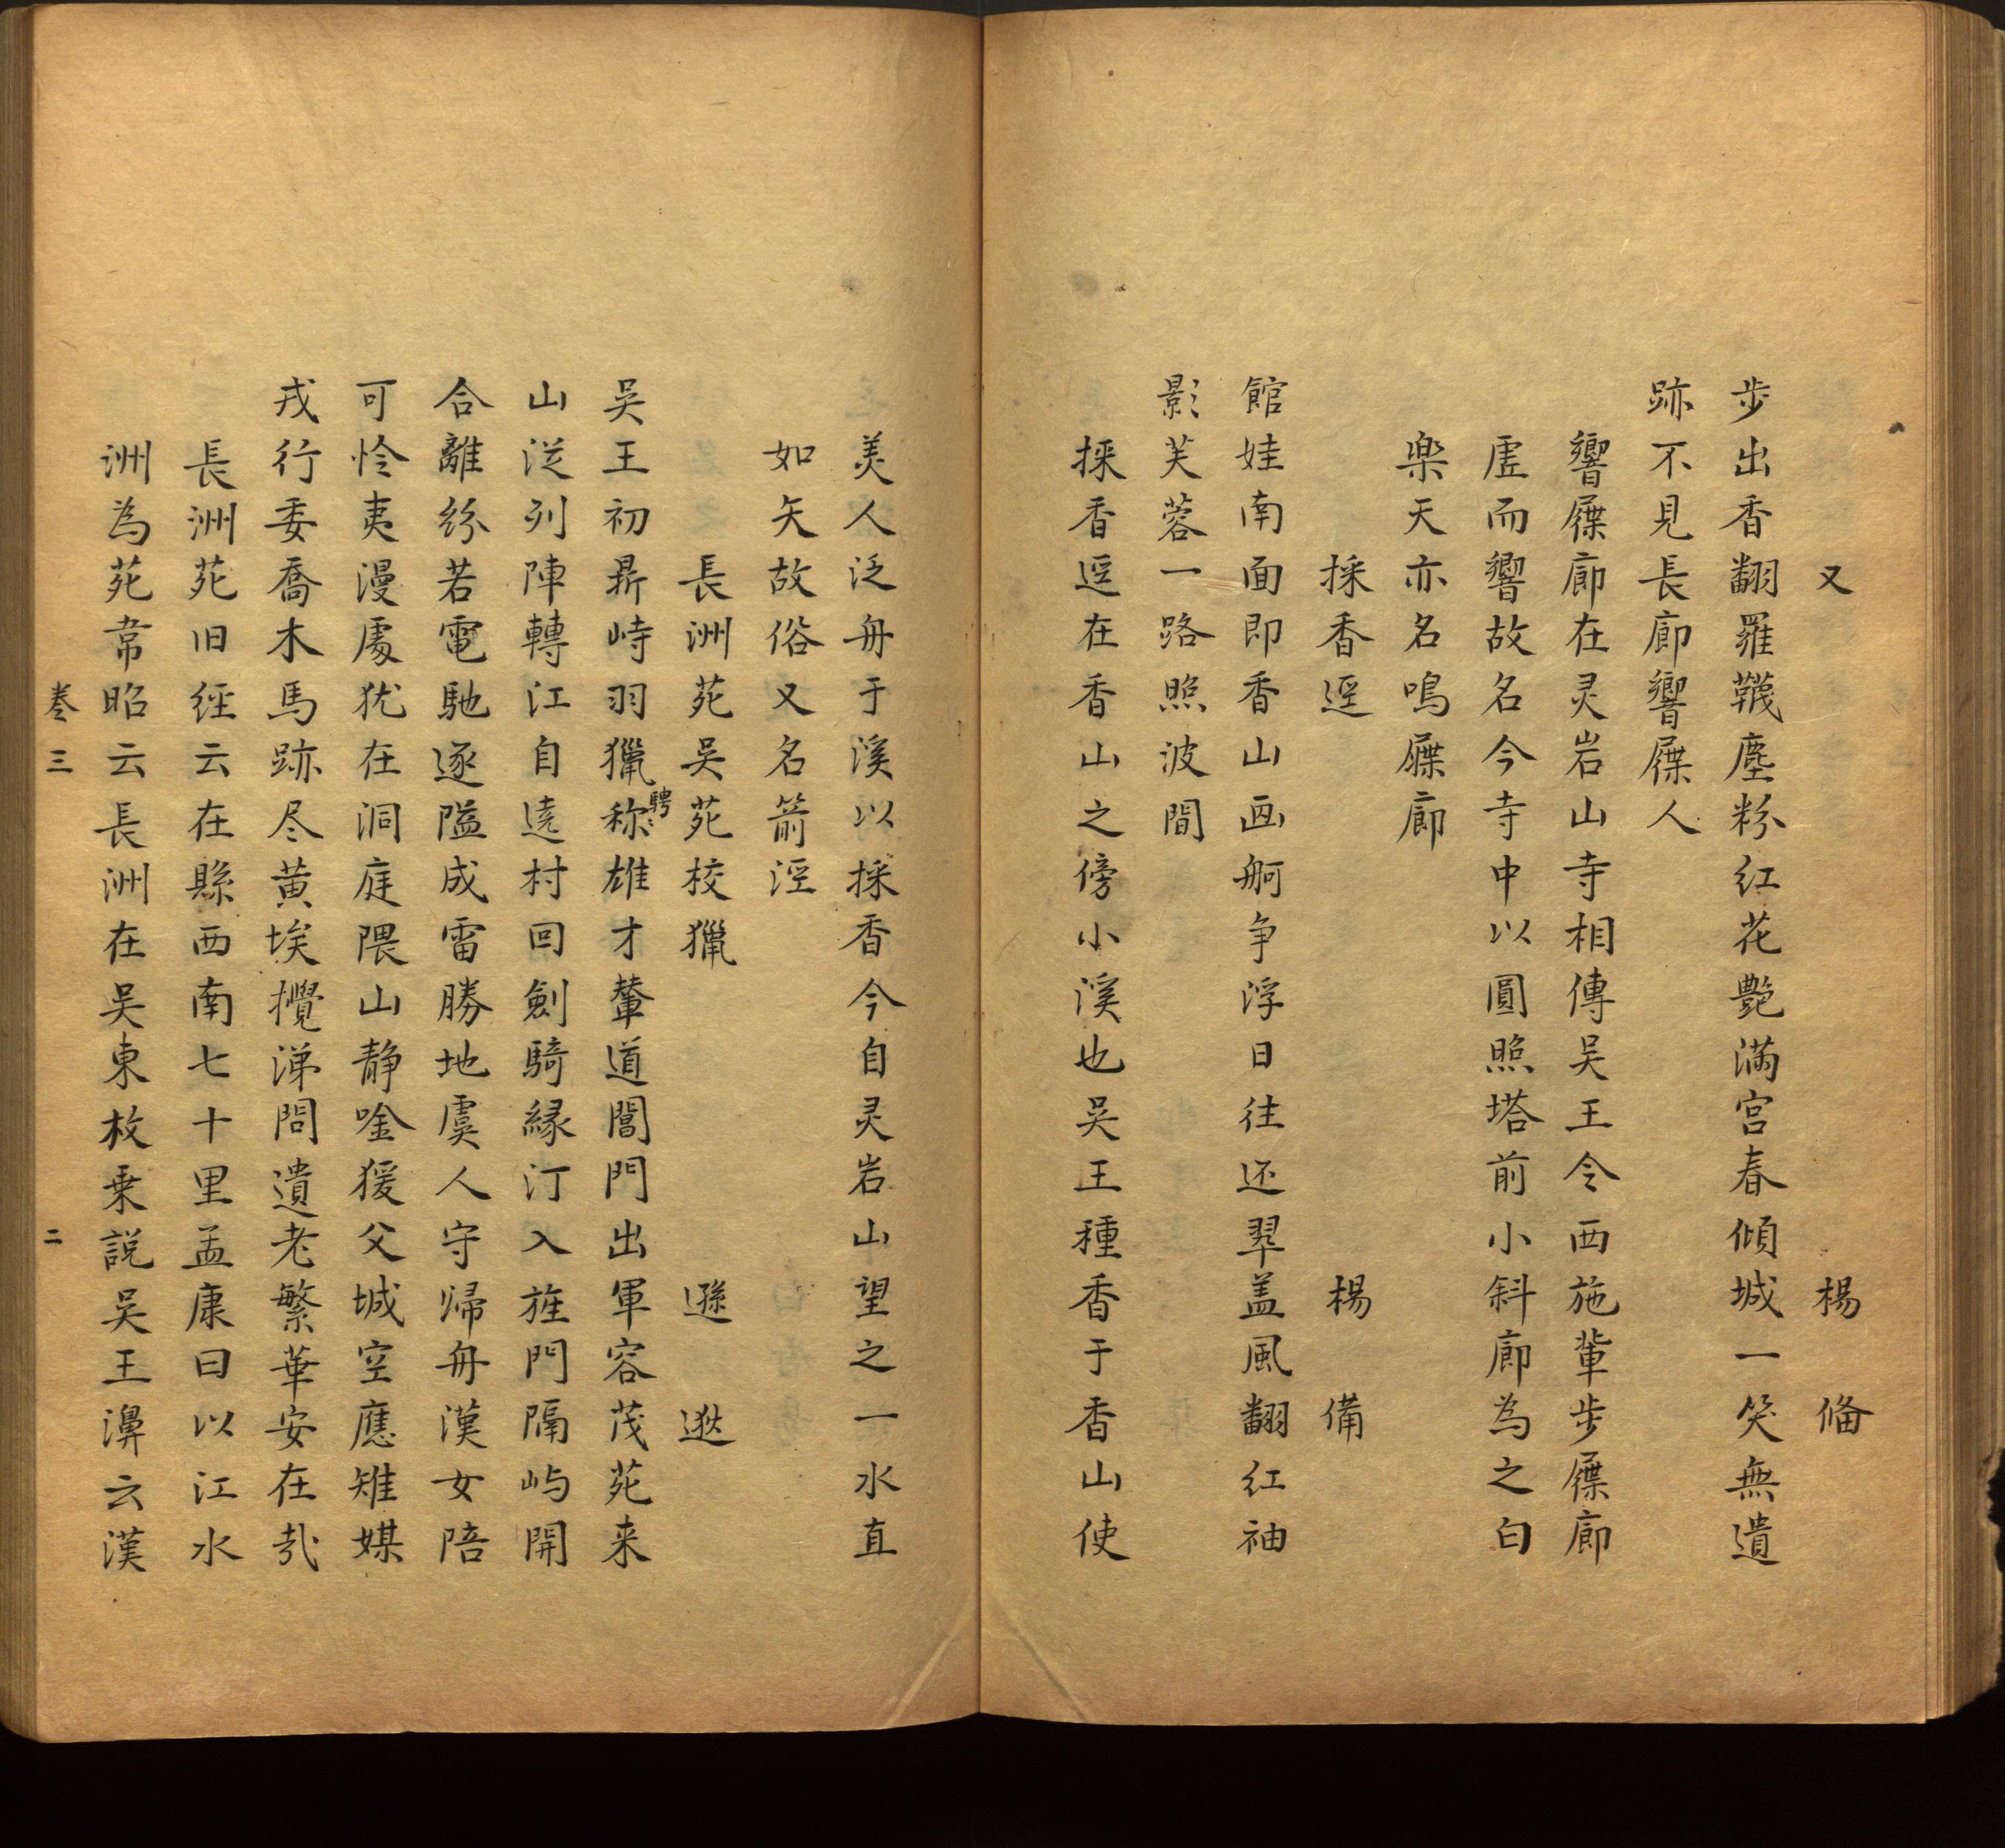 又　楊　俻
步出香翻羅韈塵粉紅花艶滿宮春傾城一笑無遺
跡不見長廊響屧人
響屧廊在灵岩山寺相傳吴王令西施輩步屧廊
虚而響故名今寺中以圓照塔前小斜廊為之白
楽天亦名鳴屧廊
採香逕　楊　備
館娃南面即香山画舸争浮日往还翠盖風翻紅袖
影芙蓉一路照波間
採香逕在香山之傍小溪也吴王種香于香山使
美人泛舟于溪以採香今自灵岩山望之一水直
如矢故俗又名箭涇
長洲苑吴苑校獵　遜　逖
吴王初鼎峙羽獵騁称雄才輦道閶門出軍容茂苑来
山従列陣轉江自遶村回劍騎緣汀入旌門隔屿開
合離紛若電馳逐隘成雷勝地虞人守歸舟漢女陪
可怜夷漫處犹在洞庭隈山静唫猨父城空應雉媒
戎行委喬木馬跡尽黄埃攬涕問遺老繁華安在㢤
長洲苑旧経云在縣西南七十里孟康曰以江水
洲為苑韋昭云長洲在吴東枚乗説吴王濞云漢
卷三　二